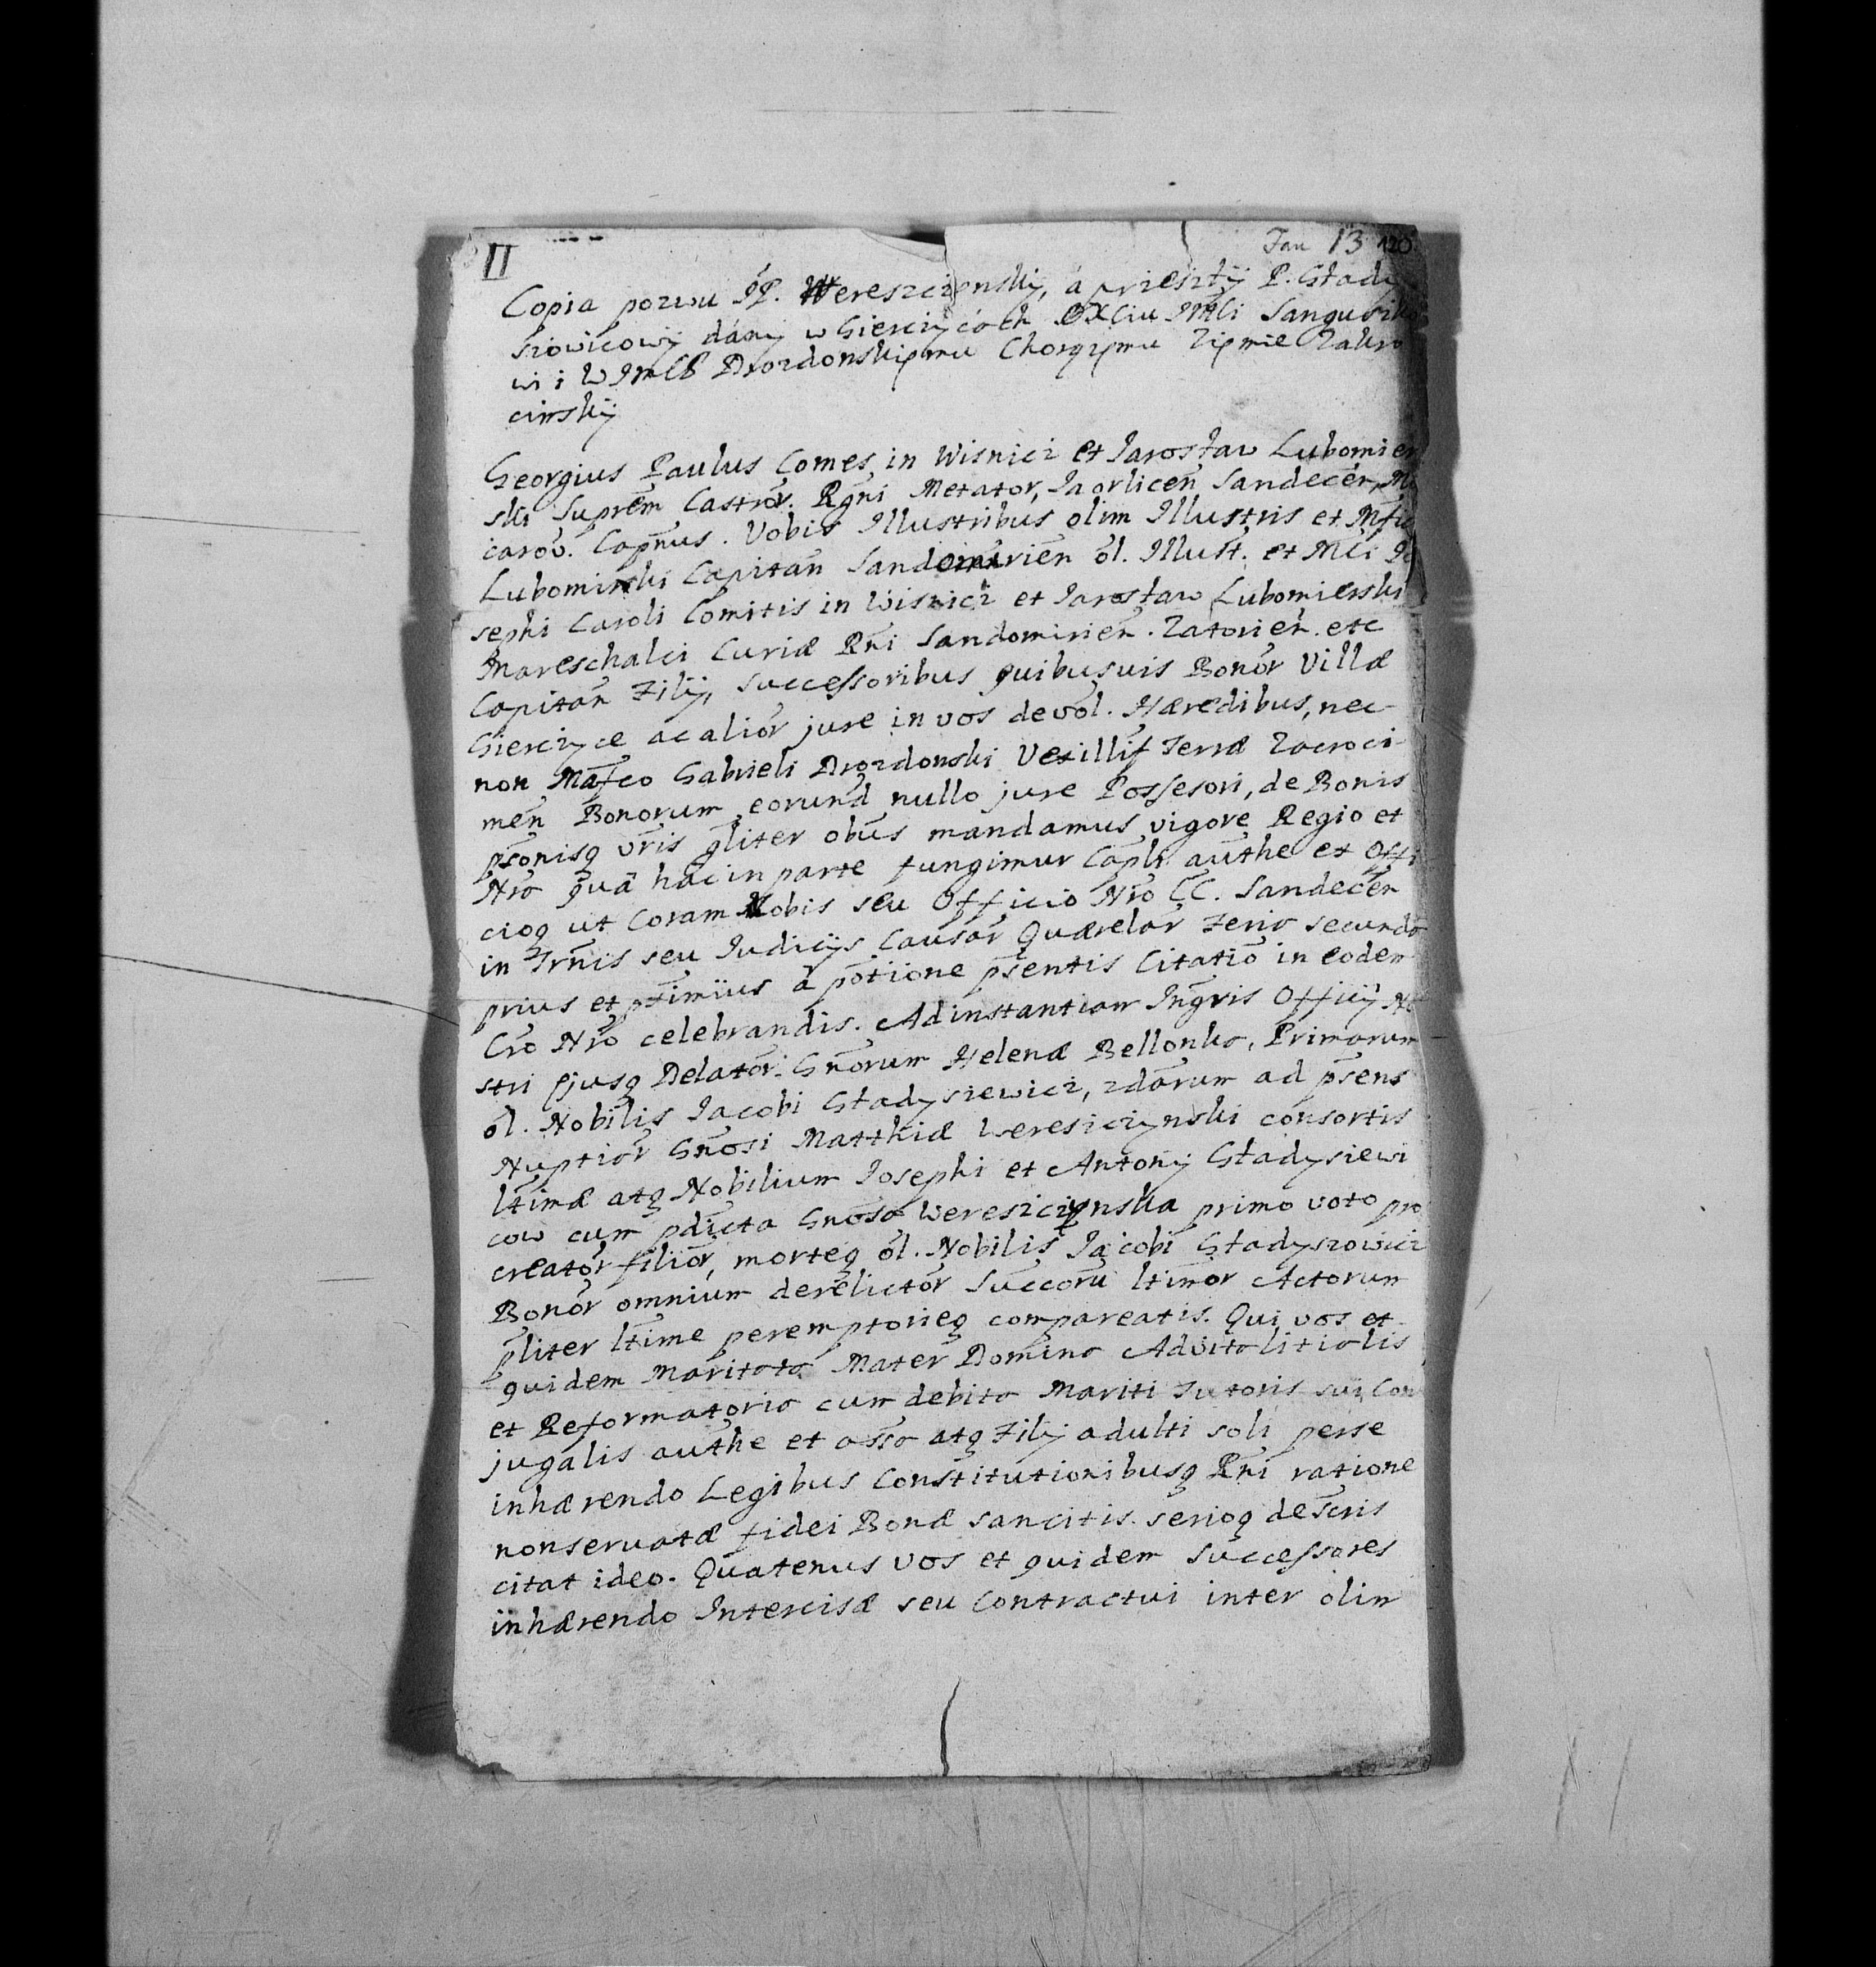 II
Jan 13 120
Copia pozwu JP. Wereszczynskij, á przeszłÿ P. Gładÿ
szowicowÿ dánÿ w Gierczÿcách OXciu JMCi Sanguszko
wi i WJmCP Drozdonskiemu Chorążemu Ziemie Zakro
cimskÿ
Georgius Paulus Comes in Wisnicz et Jarosław Lubomier
ski Suprem̃ Castror̃. Rgni Metator, Jaorlicen̄ Sandecen̄, Mi
carov̄. Capn̄us. Vobis Illustribus olim Illustris et Mfici
Lubomirski Capitan̄ Sandomirien̄ ol̄. Illust. et Mc̄i Jo
sephi Caroli Comitis in Wisnicz et Jarosław Lubomierski
Mareschalci Curiæ Rn̄i Sandomirien̄. Zatorien̄. etc
Capitan̄ Filij, Successoribus quibusuis Bonor̄ Villæ
Gierczyce ac alior̄ jure in vos devol̄. Hæredibus, nec
non Mafco Gabrieli Drozdonski Vexillif Terræ Zacroci-
men̄ Bonorum eorund̄ nullo jure Possesori, de Bonis
psonisq̨ vr̄is gl̄iter ob̄us mandamus vigore Regio et
Nr̄o quā hac in parte fungimur Capl̄i aut̄he et Offi
cioq̨ ut Coram Nobis seu Officio Nr̄o CC. Sandecen̄
in Trn̄is seu Judicijs Causar̄ Quærelar̄ Feria secunda
prius et pt̄imiius à pōtione ps̄entis Citatiō in eodem
Cr̄o Nr̄o celebrandis. Ad instantiam Ingr̄is Officij No
stri Ejusq̨ Delator̄. Gn̄orum Helenæ Bellonko, Primarum
ol̄. Nobilis Jacobi Gładysiewicz, 2dārum ad ps̄ens
Nuptiar̄ Gn̄osi Matthiæ Weresiczynski consortis
lt̄imæ atq̨ Nobilium Josephi et Antonij Gładysiewi
cow cum pdicta Gn̄osa Weresiczynska primo voto pro
creator̄ filior̄, morteq̨ ol̄. Nobilis Jacobi Gładyszowicz
Bonor̄ omnium derelictor̄ Succorū lt̄imor Actorum
pl̄iter lt̄ime peremptorieq̨ compareatis. Qui vos et
quidem Maritata Mater Domina Advitalitialis
et Reformatoria cum debita Mariti Tutoris sui Con
jugalis aut̄he et ass̄a atq̨ Filij adulti soli per se
inhærendo Legibus Constitutionibusq̨ Rn̄i ratione
non servatæ fidei Bonæ sancitis serioq̨ descris
citat ideo. Quatenus vos et quidem Successores
inhærendo Intercisæ seu Contractui inter olim